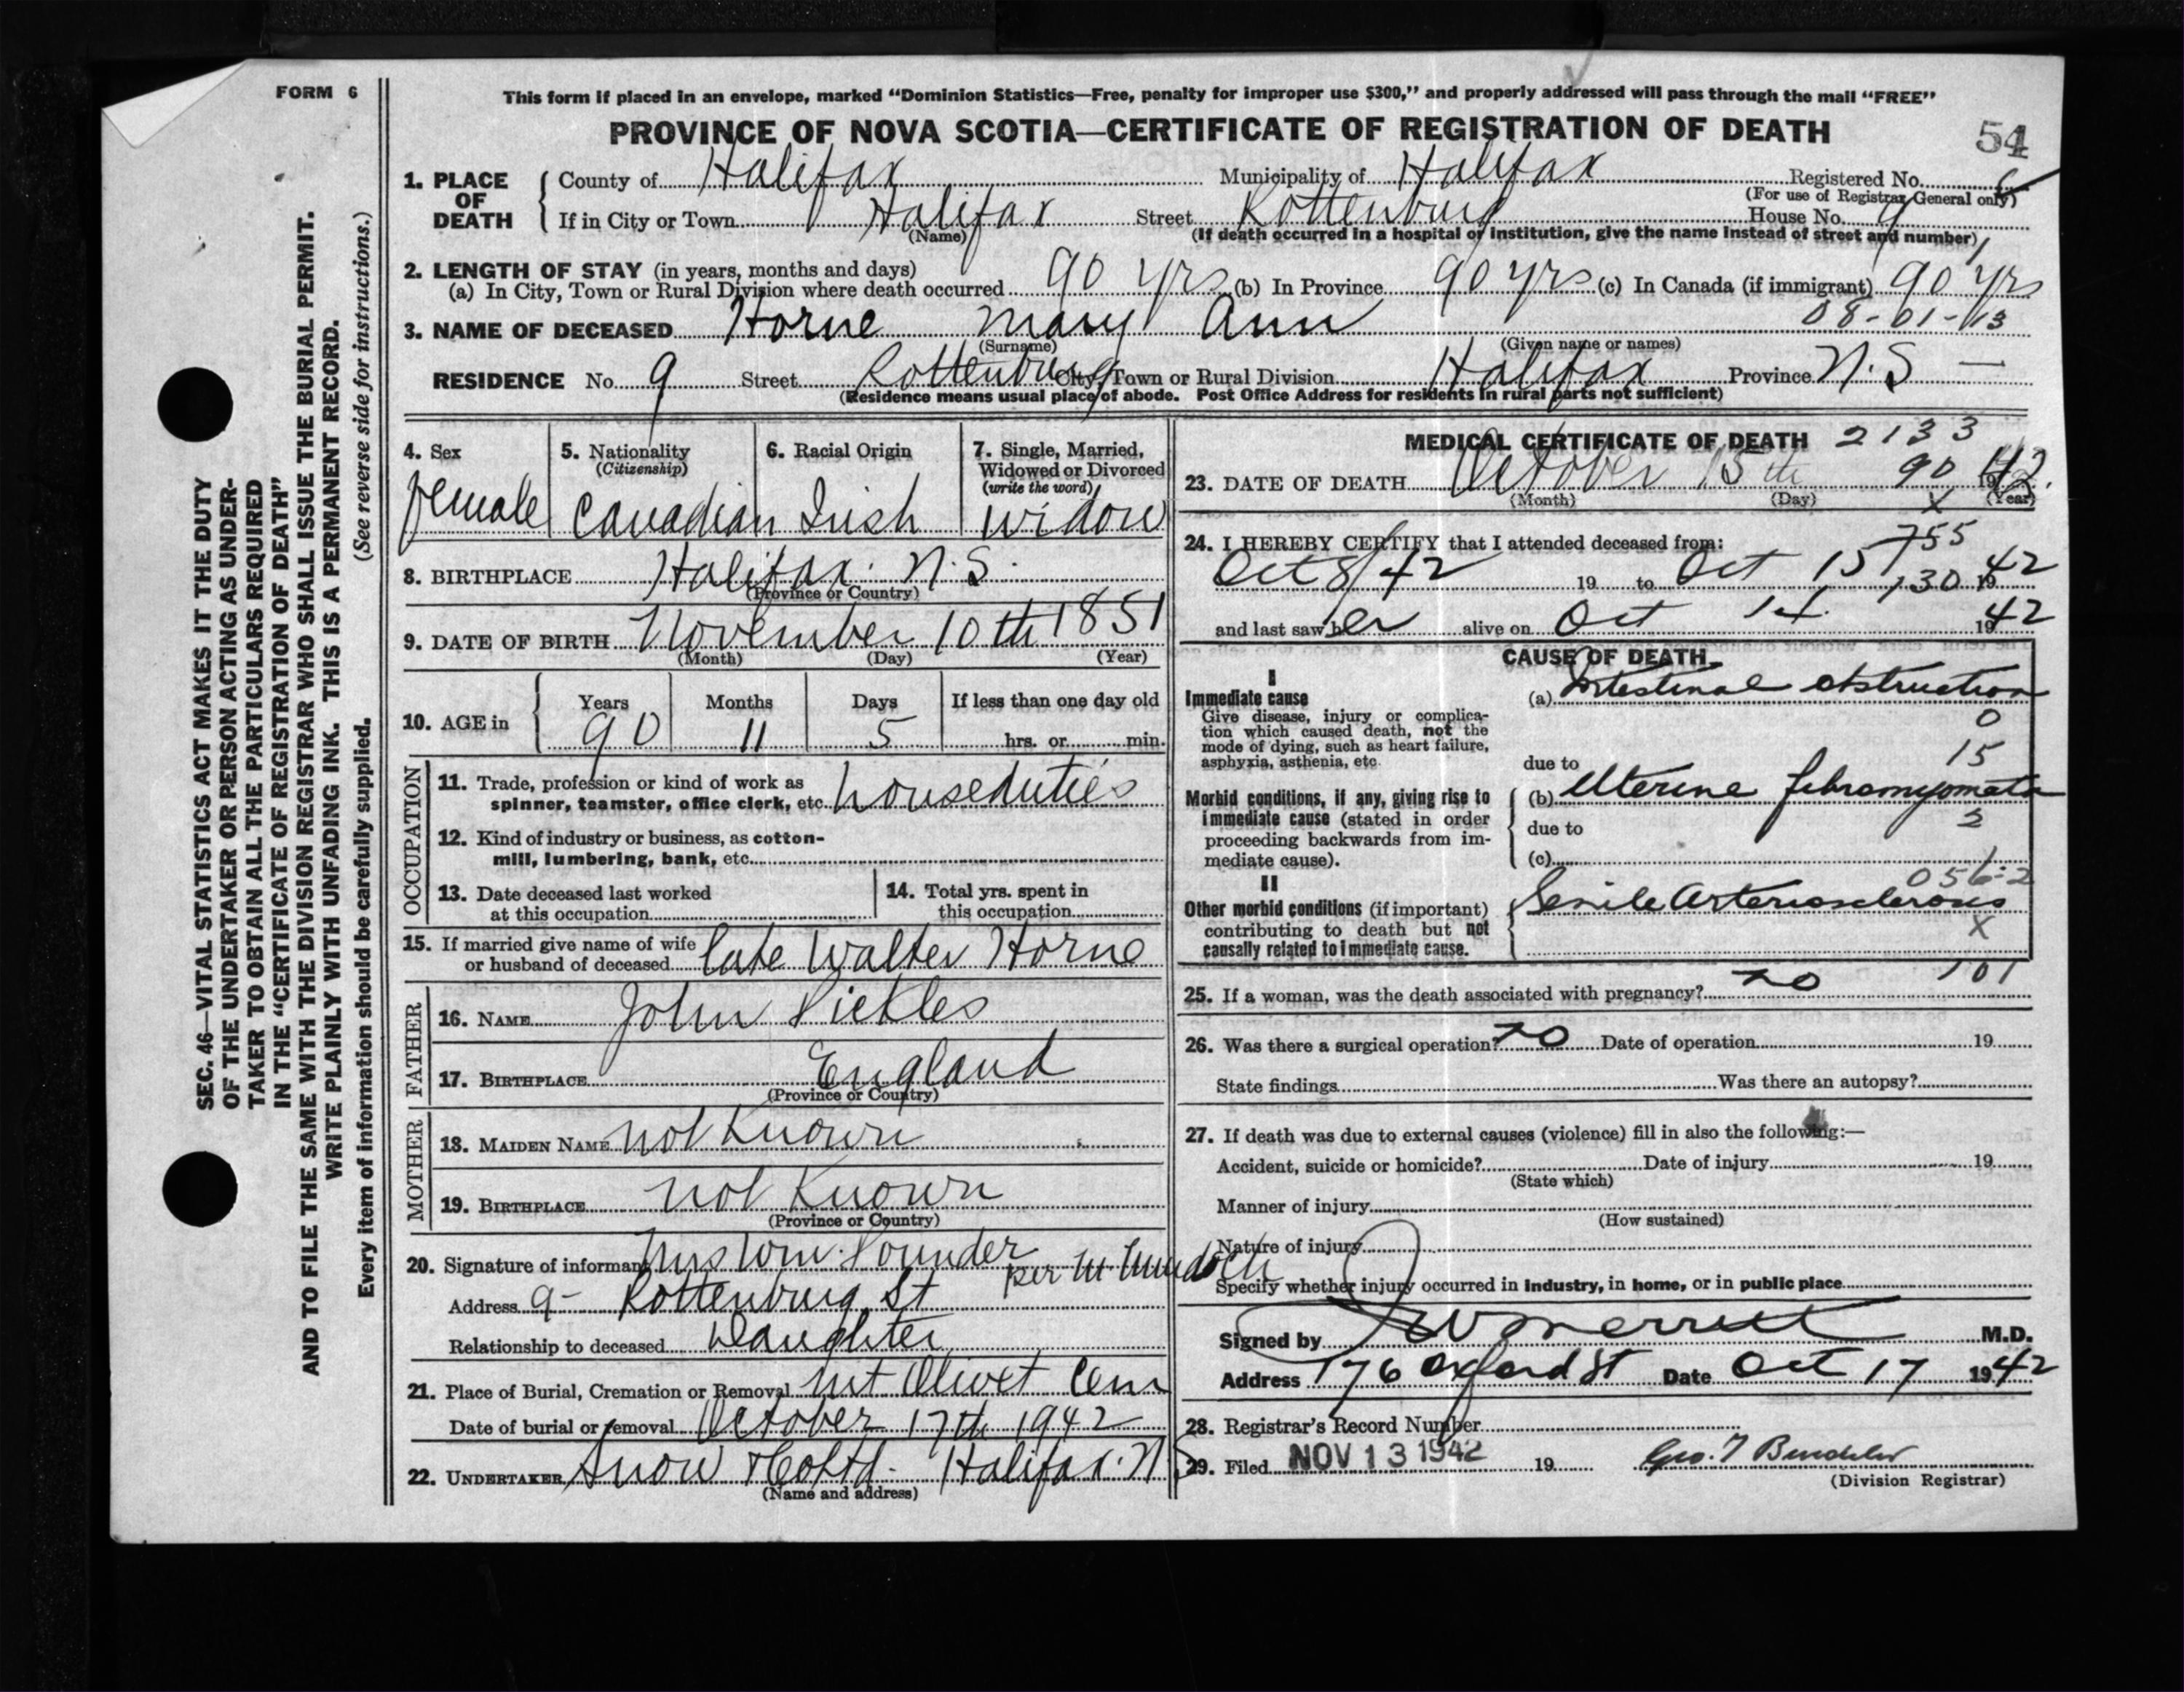 FORM 6
This form if placed in an envelope, marked "Dominion Statistics—Free, penalty for improper use $300," and properly addressed will pass through the mail "FREE"
PROVINCE OF NOVA SCOTIA—CERTIFICATE OF REGISTRATION OF DEATH
54
SEC. 46—VITAL STATISTICS ACT MAKES IT THE DUTY
OF THE UNDERTAKER OR PERSON ACTING AS UNDER-
TAKER TO OBTAIN ALL THE PARTICULARS REQUIRED
IN THE "CERTIFICATE OF REGISTRATION OF DEATH"
AND TO FILE THE SAME WITH THE DIVISION REGISTRAR WHO SHALL ISSUE THE BURIAL PERMIT.
WRITE PLAINLY WITH UNFADING INK. THIS IS A PERMANENT RECORD.
Every item of information should be carefully supplied. (See reverse side for instructions.)
1. PLACE OF DEATH
County of Halifax Municipality of Halifax Registered No.
(For use of Registrar General only)
If in City or Town Halifax Street Rottenburg House No. 9
(Name) (If death occurred in a hospital or institution, give the name instead of street and number)
2. LENGTH OF STAY (in years, months and days)
(a) In City, Town or Rural Division where death occurred 90 yrs (b) In Province 90 yrs (c) In Canada (if immigrant) 90 yrs
08-01-13
3. NAME OF DECEASED Horne Mary Ann
(Surname) (Given name or names)
RESIDENCE No. 9 Street Rottenburg City, Town or Rural Division Halifax Province N.S —
(Residence means usual place of abode. Post Office Address for residents in rural parts not sufficient)
4. Sex
female
5. Nationality
(Citizenship)
Canadian
6. Racial Origin
Irish
7. Single, Married,
Widowed or Divorced
(write the word)
widow
8. BIRTHPLACE Halifax. N.S.
(Province or Country)
9. DATE OF BIRTH November 10th 1851
(Month) (Day) (Year)
10. AGE in
Years Months Days If less than one day old
90 11 5 hrs. or min.
OCCUPATION
11. Trade, profession or kind of work as
spinner, teamster, office clerk, etc. houseduties
12. Kind of industry or business, as cotton-
mill, lumbering, bank, etc.
13. Date deceased last worked
at this occupation
14. Total yrs. spent in
this occupation
15. If married give name of wife
or husband of deceased late Walter Horne
FATHER
16. NAME John Pickles
17. BIRTHPLACE England
(Province or Country)
MOTHER
18. MAIDEN NAME not Known
19. BIRTHPLACE not Known
(Province or Country)
20. Signature of informant Mrs Wm. Pounder
per M Murdoch
Address 9- Rottenburg St
Relationship to deceased Daughter
21. Place of Burial, Cremation or Removal Mt Olivet Cem
Date of burial or removal October 17th 1942
22. UNDERTAKER Snow & Co Ltd. Halifax. N.S
(Name and address)
MEDICAL CERTIFICATE OF DEATH 2133
23. DATE OF DEATH October 15th 90 1942.
(Month) (Day) X (Year)
24. I HEREBY CERTIFY that I attended deceased from:
755
Oct 8/42 19 to Oct 15 130 1942
and last saw her alive on Oct 14. 1942
CAUSE OF DEATH
I
Immediate cause
Give disease, injury or complica-
tion which caused death, not the
mode of dying, such as heart failure,
asphyxia, asthenia, etc.
(a) Intestinal obstruction
0
15
due to
Morbid conditions, if any, giving rise to
immediate cause (stated in order
proceeding backwards from im-
mediate cause).
(b) Uterine fibromyomata
2
due to
(c)
056-2
II
Other morbid conditions (if important)
contributing to death but not
causally related to immediate cause.
Senile Arteriosclerosis
X
25. If a woman, was the death associated with pregnancy? no 101
26. Was there a surgical operation? no Date of operation 19
State findings Was there an autopsy?
27. If death was due to external causes (violence) fill in also the following:—
Accident, suicide or homicide? Date of injury 19
(State which)
Manner of injury
(How sustained)
Nature of injury
Specify whether injury occurred in industry, in home, or in public place
Signed by Merritt M.D.
Address 176 Oxford St Date Oct 17 1942
28. Registrar's Record Number
29. Filed NOV 13 1942 19
(Division Registrar)